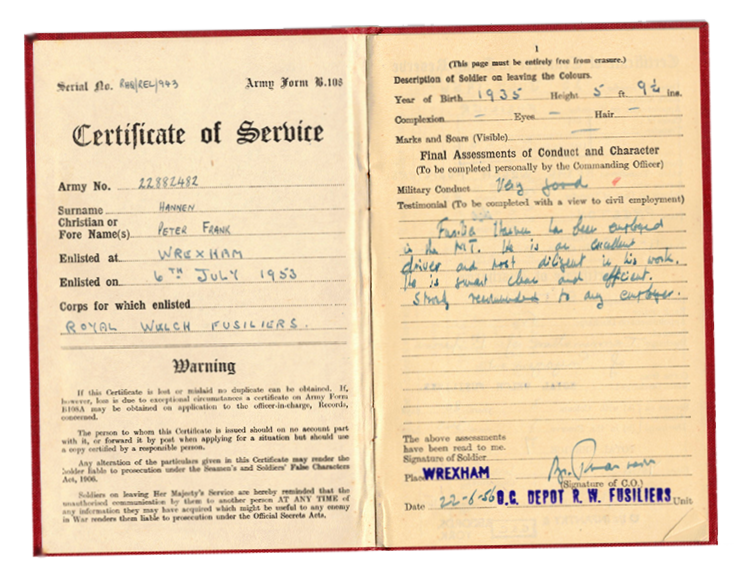 Serial No. RHB/REL/943 Army Form B.108
Certificate of Service
Army No. 22882482
Surname HANNEN
Christian or
Fore Name(s) PETER FRANK
Enlisted at WREXHAM
Enlisted on 6TH JULY 1953
Corps for which enlisted
ROYAL WELCH FUSILIERS.
Warning
If this Certificate is lost or mislaid no duplicate can be obtained. If,
however, loss is due to exceptional circumstances a certificate on Army Form
B108A may be obtained on application to the officer-in-charge, Records,
concerned.
The person to whom this Certificate is issued should on no account part
with it, or forward it by post when applying for a situation but should use
a copy certified by a responsible person.
Any alteration of the particulars given in this Certificate may render the
holder liable to prosecution under the Seamen's and Soldiers' False Characters
Act, 1906.
Soldiers on leaving Her Majesty's Service are hereby reminded that the
unauthorised communication by them to another person AT ANY TIME of
any information they may have acquired which might be useful to any enemy
in War renders them liable to prosecution under the Official Secrets Acts.
1
(This page must be entirely free from erasure.)
Description of Soldier on leaving the Colours.
Year of Birth 1935 Height 5 ft. 9½ ins.
Complexion – Eyes – Hair –
Marks and Scars (Visible) –
Final Assessments of Conduct and Character
(To be completed personally by the Commanding Officer)
Military Conduct Very good
Testimonial (To be completed with a view to civil employment)
Fusilier Hannen has been employed
in the MT. He is an excellent
driver and most diligent in his work.
He is smart clean and efficient.
Strongly recommended to any employer.
The above assessments
have been read to me.
Signature of Soldier
Place WREXHAM
(Signature of C.O.)
Date 22-6-56 O.C. DEPOT R. W. FUSILIERS Unit